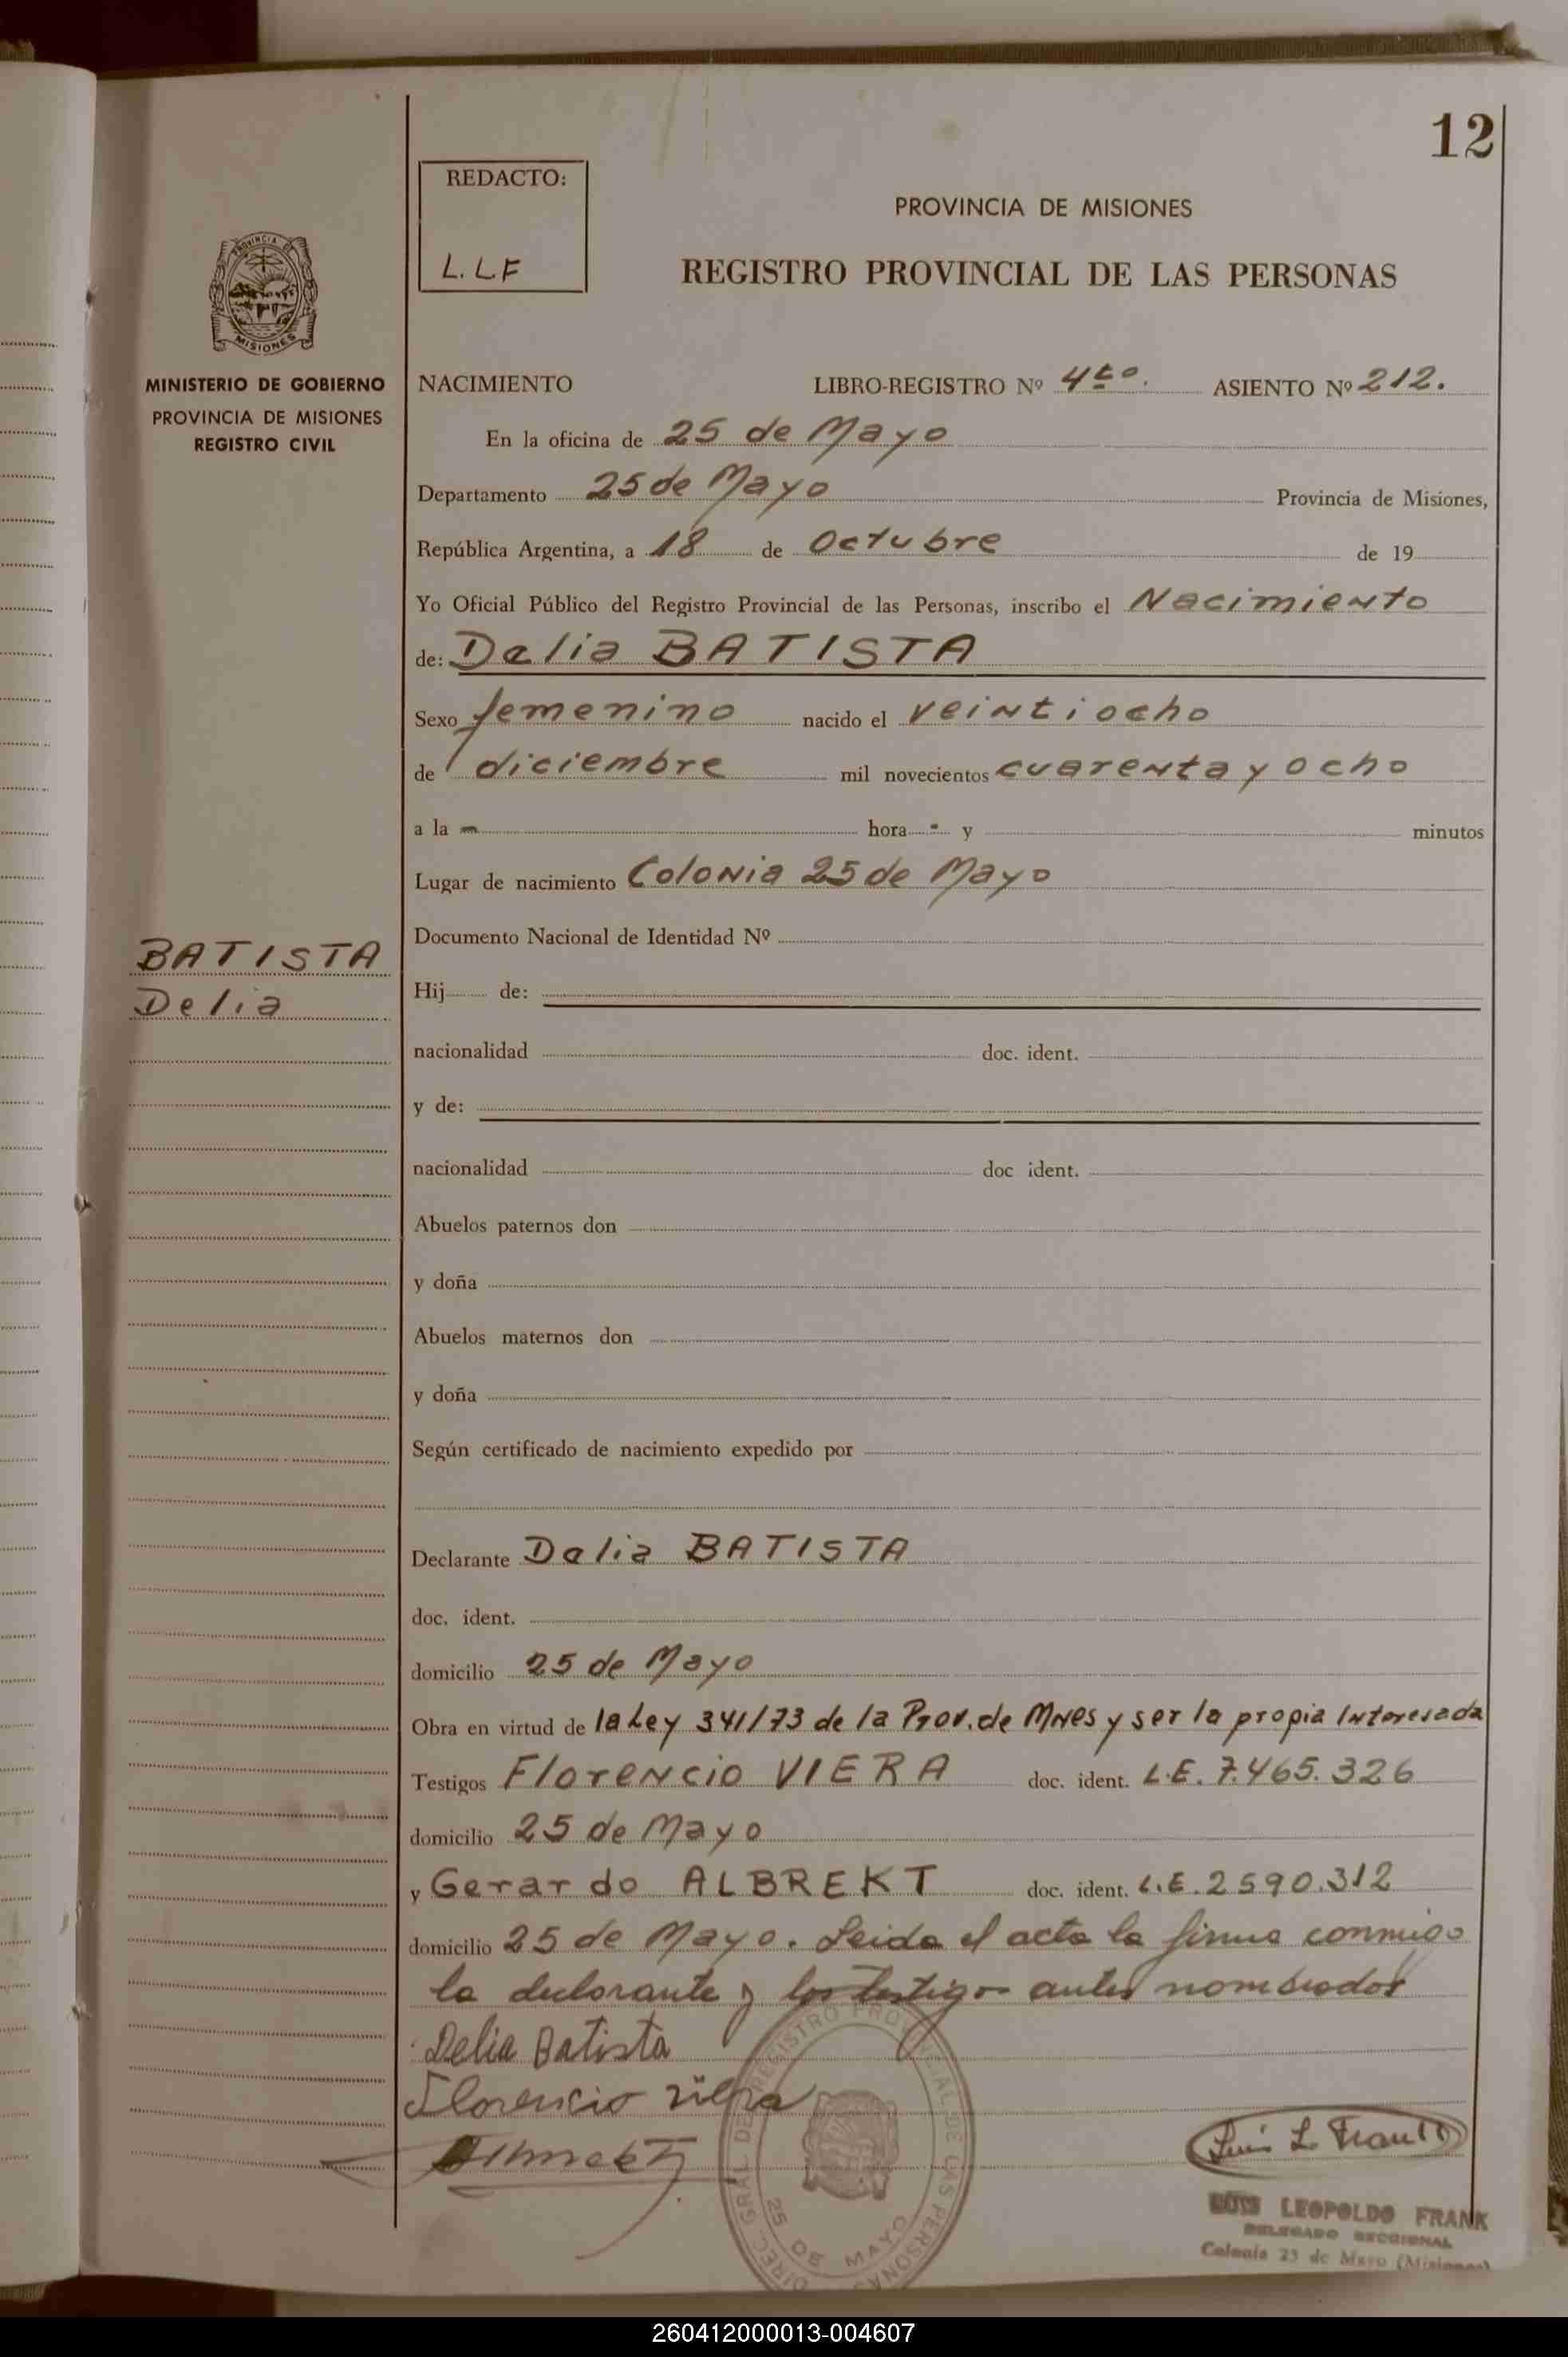 12
REDACTO:
L. L F
PROVINCIA DE MISIONES
REGISTRO PROVINCIAL DE LAS PERSONAS
PROVINCIA DE
MISIONES
MINISTERIO DE GOBIERNO
PROVINCIA DE MISIONES
REGISTRO CIVIL
BATISTA
Delia
NACIMIENTO LIBRO-REGISTRO Nº 4to. ASIENTO Nº 212.
En la oficina de 25 de Mayo
Departamento 25 de Mayo Provincia de Misiones,
República Argentina, a 18 de Octubre de 19
Yo Oficial Público del Registro Provincial de las Personas, inscribo el Nacimiento
de: Delia BATISTA
Sexo femenino nacido el veintiocho
de diciembre mil novecientos cuarenta y ocho
a la - hora - y minutos
Lugar de nacimiento Colonia 25 de Mayo
Documento Nacional de Identidad Nº
Hij de:
nacionalidad doc. ident.
y de:
nacionalidad doc ident.
Abuelos paternos don
y doña
Abuelos maternos don
y doña
Según certificado de nacimiento expedido por
Declarante Delia BATISTA
doc. ident.
domicilio 25 de Mayo
Obra en virtud de la Ley 341/73 de la Prov. de Mnes y ser la propia Interesada
Testigos Florencio VIERA doc. ident. L.E. 7.465.326
domicilio 25 de Mayo
y Gerardo ALBREKT doc. ident. L.E. 2590.312
domicilio 25 de Mayo. Leida el acta la firma conmigo
la declarante y los testigos antes nombrados
Delia Batista
Florencio Viera
DIREC. GRAL. DE REGISTRO PROVINCIAL DE LAS PERSONAS
25 DE MAYO
Luis L. Frank
LUIS LEOPOLDO FRANK
DELEGADO SECCIONAL
Colonia 25 de Mayo (Misiones)
260412000013-004607